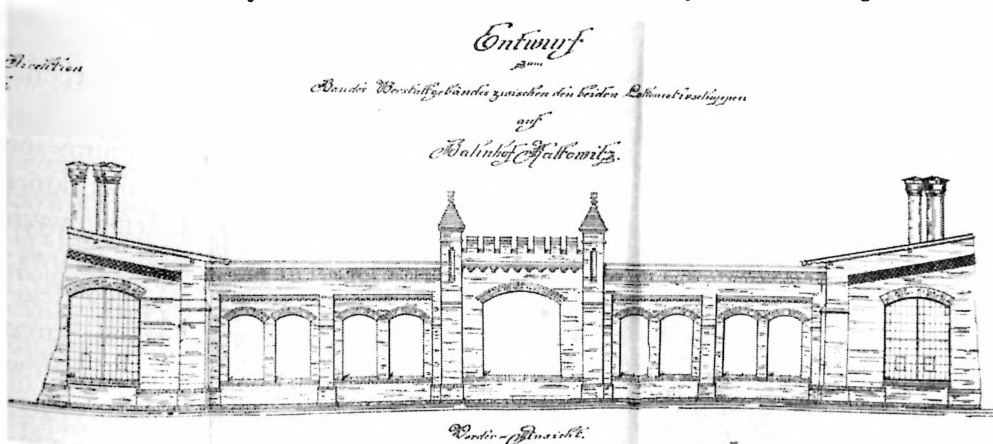 Direction
Entwurf
zum
Bau des Werkstattgebäudes zwischen den beiden Lokomotivschuppen
auf
Bahnhof Kattowitz.
Vorder-Ansicht.